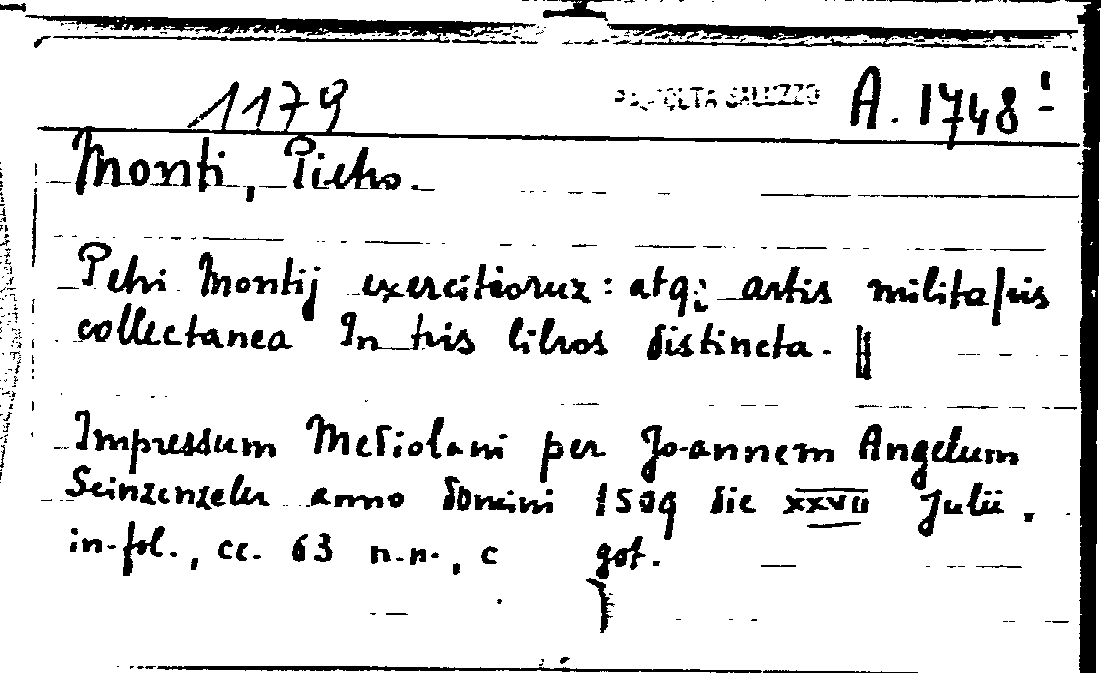 1179 RACCOLTA SALUZZO A. 1748¹
Monti, Pietro.
Petri Montij exercitioruz: atq; artis militaris
collectanea In tris libros distincta. ||
Impressum Mediolani per Joannem Angelum
Scinzenzeler anno domini 1509 die xxvii Julii,
in-fol., cc. 63 n.n., c got.